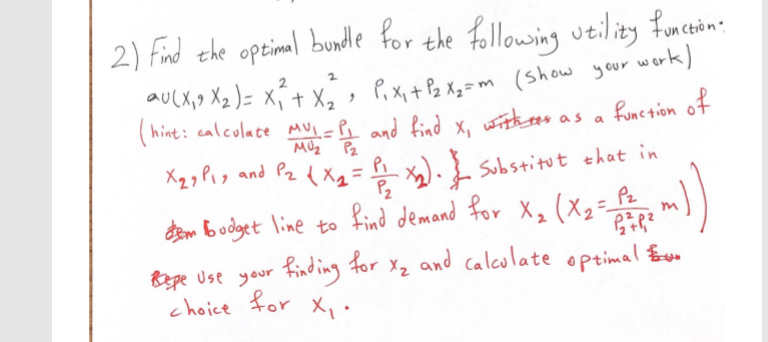 2) Find the optimal bundle for the following utility function:
au(x₁, x₂) = x₁² + x₂² , P₁x₁ + P₂x₂ = m (show your work)
(hint: calculate MU₁/MU₂ = P₁/P₂ and find x₁ as a function of
x₂, P₁, and P₂ (x₁ = P₁/P₂ x₂). } Substitut that in
budget line to find demand for x₂ (x₂ = P₂/(P₂² + P₁²) m))
Use your finding for x₂ and calculate optimal
choice for x₁.